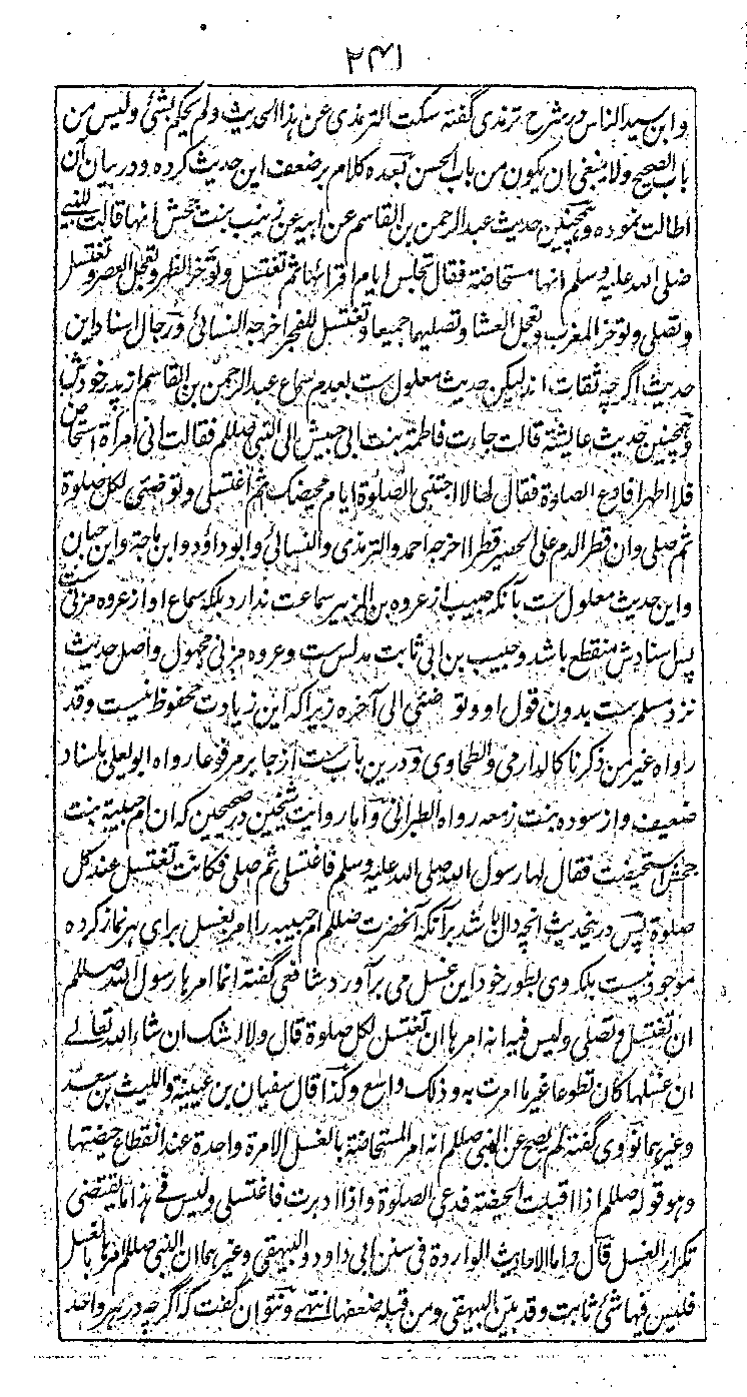 ۲۴۱
و ابن سید الناس در شرح ترمذی گفته سکت الترمذی عن هذا الحدیث ولم یحکم بشئ ولیس من
باب الصحیح ولا ینبغی ان یکون من باب الحسن بعده کلام بر ضعف این حدیث کرده و در بیان آن
اطالت نموده و همچنین حدیث عبد الرحمن بن القاسم عن ابیه عن زینب بنت جحش انها قالت للنبی
صلی الله علیه وسلم انها مستحاضة فقال تجلس ایام اقرائها ثم تغتسل وتؤخر الظهر وتعجل العصر وتغتسل
وتصلی وتؤخر المغرب وتعجل العشا وتصلیهما جمیعا وتغتسل للفجر اخرجه النسائی و رجال اسناد این
حدیث اگرچه ثقات اند لیکن حدیث معلول ست بعدم سماع عبد الرحمن بن القاسم از پدر خودش
و همچنین حدیث عایشة قالت جاءت فاطمة بنت ابی حبیش الی النبی صللم فقالت انی امرأة استحاض
فلا اطهر افادع الصلوة فقال لها لا اجتنبی الصلوة ایام محیضک ثم اغتسلی وتوضئی لکل صلوة
ثم صلی وان قطر الدم علی الحصیر قطرا اخرجه احمد والترمذی والنسائی وابو داؤد وابن ماجة وابن حبان
و این حدیث معلول ست بآنکه حبیب از عروه بن الزبیر سماعت ندارد بلکه سماع او از عروه مزنی ست
پس اسنادش منقطع باشد و حبیب بن ابی ثابت مدلس ست و عروه مزنی مجهول و اصل حدیث
نزد مسلم ست بدون قول او و توضئی الی آخره زیرا که این زیادت محفوظ نیست وقد
رواه غیر من ذکرنا کالدارمی والطحاوی و درین باب ست از جابر مرفوعا رواه ابو یعلی باسناد
ضعیف و از سوده بنت زمعه رواه الطبرانی و اما روایت شیخین در صحیحین که ان ام حبیبة بنت
جحش استحیضت فقال لها رسول الله صلی الله علیه وسلم فاغتسلی ثم صلی فکانت تغتسل عند کل
صلوة پس درینحدیث انچه دال باشد برآنکه آنحضرت صللم ام حبیبه را امر بغسل برای هر نماز کرده
موجود نیست بلکه وی بطور خود این غسل می برآورد شافعی گفته انما امرها رسول الله صللم
ان تغتسل وتصلی ولیس فیه انه امرها ان تغتسل لکل صلوة قال ولا اشک ان شاء الله تعالے
ان غسلها کان تطوعا غیر ما امرت به وذلک واسع وکذا قال سفیان بن عیینة واللیث بن سعد
وغیرهما نووی گفته لم یصح عن النبی صللم انه امر المستحاضة بالغسل الا مرة واحدة عند انقطاع حیضتها
وهو قوله صللم اذا اقبلت الحیضة فدعی الصلوة واذا ادبرت فاغتسلی ولیس فے هذا ما یقتضی
تکرار الغسل قال واما الاحادیث الواردة فی سنن ابی داود والبیهقی وغیرهما ان النبی صللم امرها بالغسل
فلیس فیها شئ ثابت وقد بین البیهقی ومن قبله ضعفها انتهے و نتوان گفت که اگرچه در هر واحد